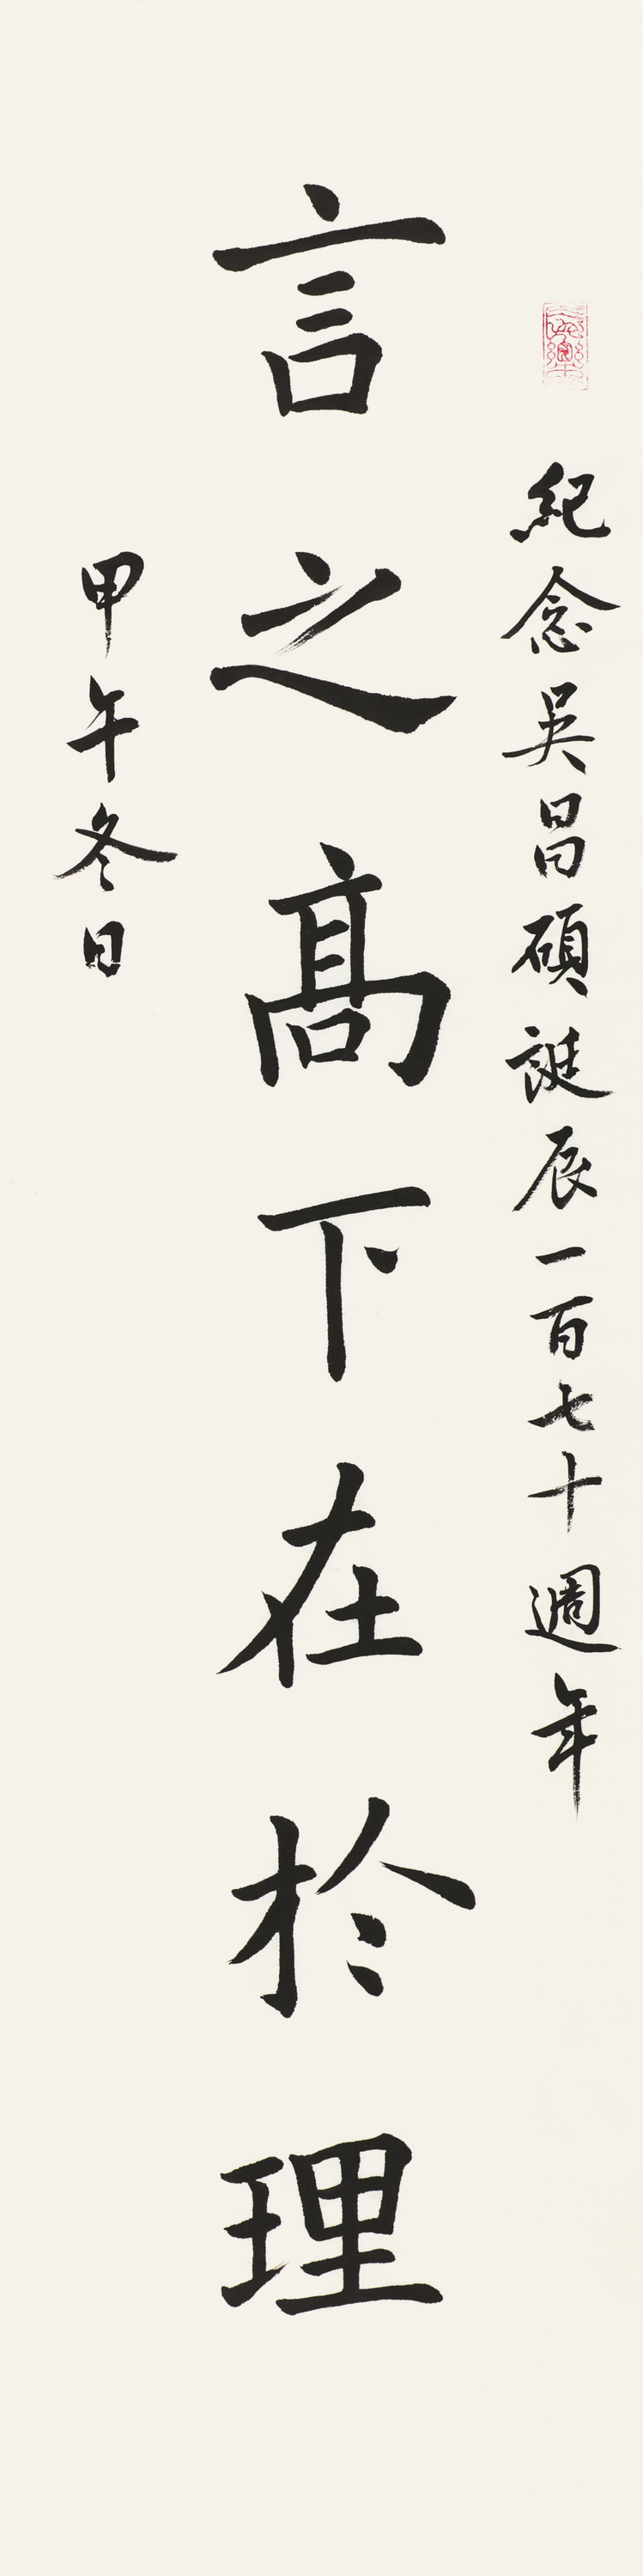 紀念吳昌碩誕辰一百七十週年
言之髙下在於理
甲午冬日